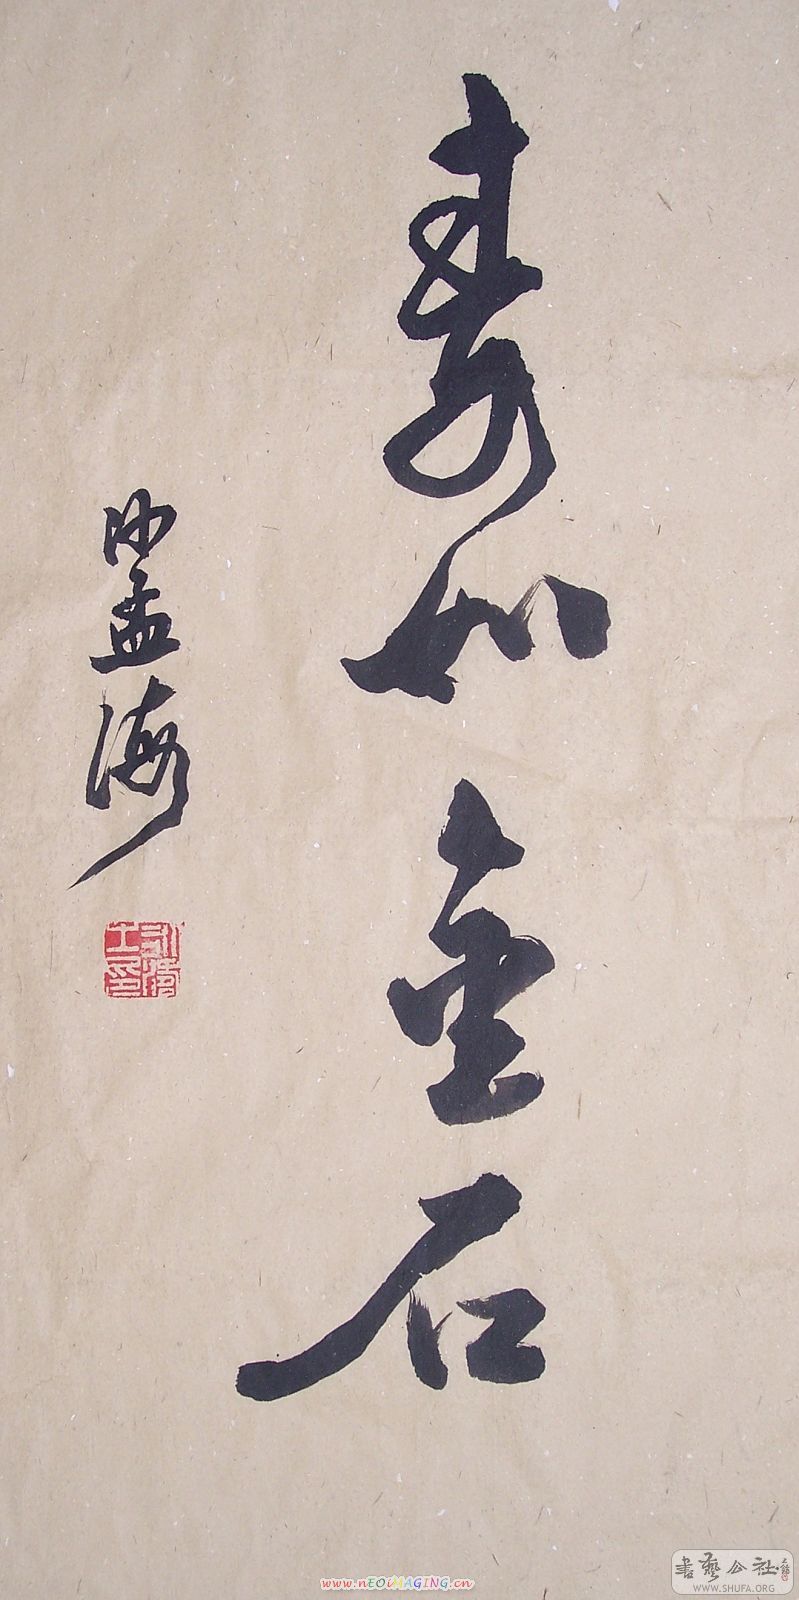 寿如金石
沙孟海
www.nEOiMAGING.cn
書藝公社
WWW.SHUFA.ORG